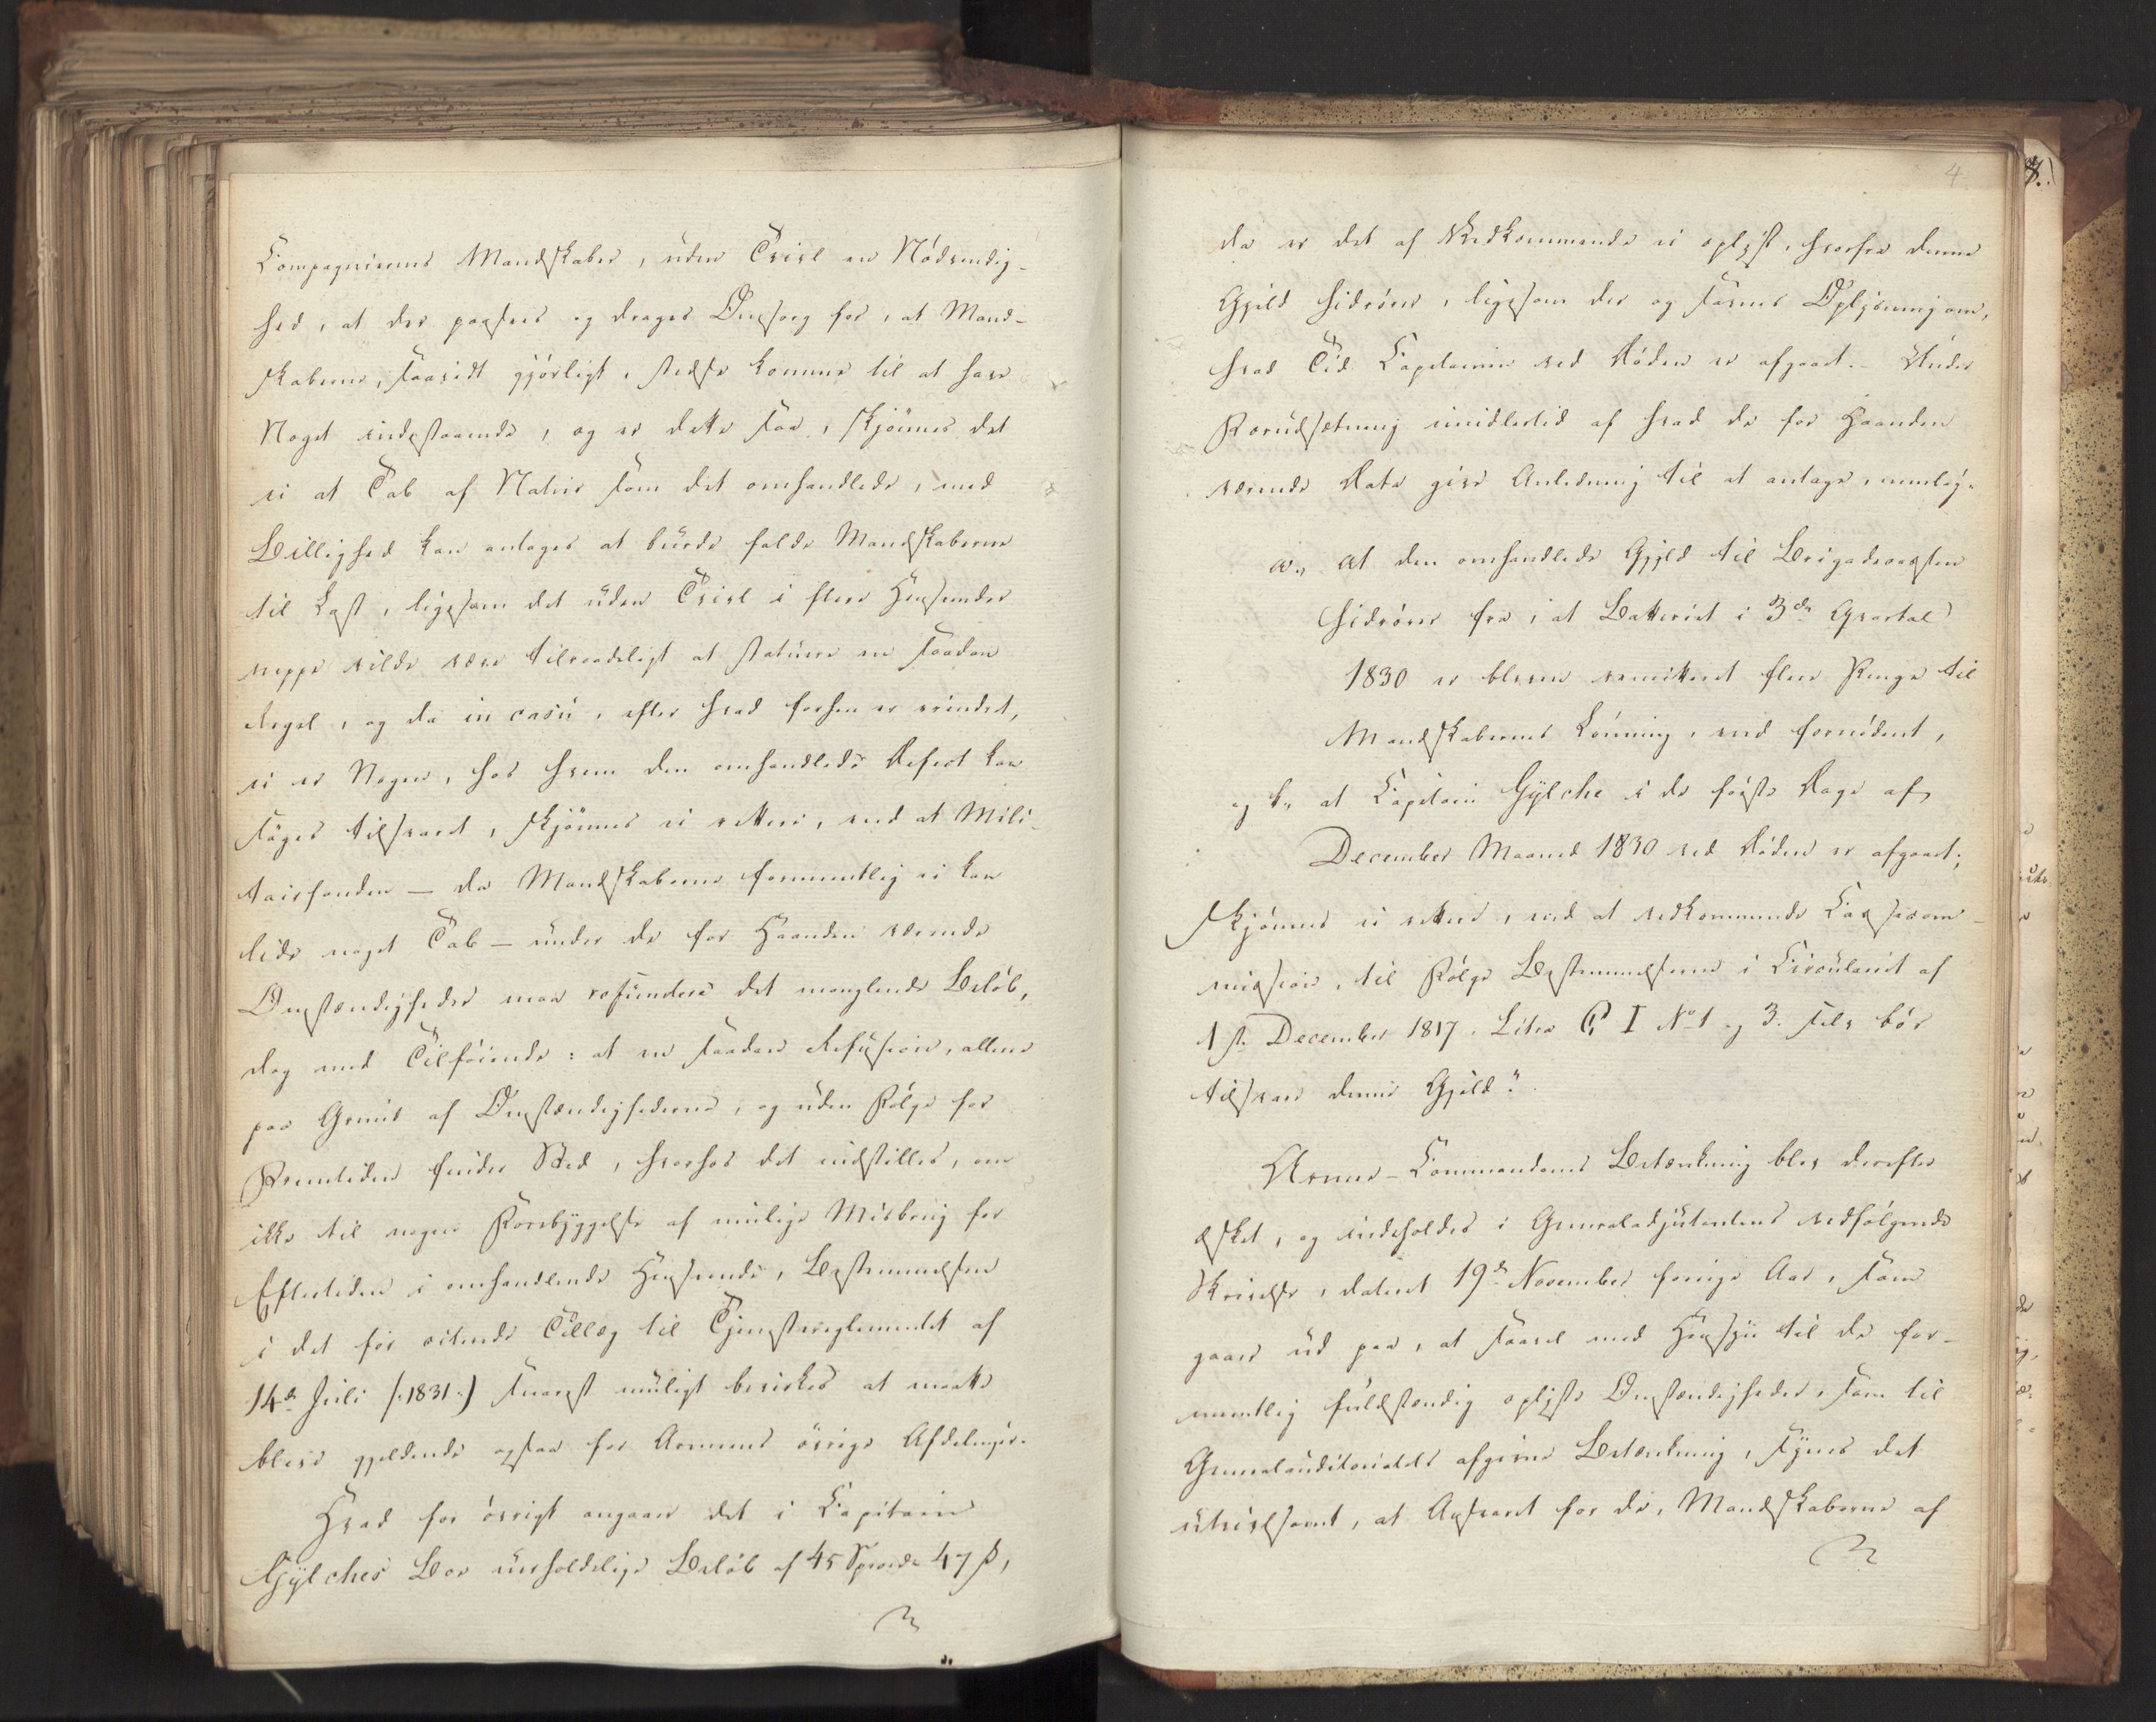 Compagnierens Mandskaber, uden Tvivl en Nödvendig-
hed, at der passes og drages Omsorg for, at Mand-
skaberne, saavidt gjörligt, stedse komme til at have
Noget indestaaende, og er dette saa, skjönnes det
ei at Tab af Natur som det omhandlede, med
Billighed kan antages at burde falde Mandskaberne
til Last, ligesom det uden Tvivl i flere Henseender
neppe vilde være tilraadeligt at statuere en saadan
Regel, og da in casu, efter hvad forhen er erindret,
ei er Nogen, hos hvem den omhandlede Defect kan
söges tilsvaret, skjönnes ei rettere, end at Mili-
tairfonden – da Mandskaberne formeentlig ei kan
lide noget Tab – under de for Haanden værende
Omstændigheder maa refundere det manglende Belöb,
dog med Tilföiende: at en saadan Refusion, allene
paa Grund af Omstændighederne, og uden Fölge for
Fremtiden finder Sted, hvorhos det indstilles, om
ikke til nogen Forebyggelse af mulige Misbrug for
Eftertiden i omhandlende Henseende, Bestemmelsen
i detför citerede Tillæg til Tjenestereglementet af
14de Juli (:1831:) snarest muligt bevirkes at maatte
blive gjeldende ogsaa for Armeens övrige Afdelinger.
Hvad for övrigt angaaer det i Capitain
Gylches Boe uerholdelige Belöb af 45 Spd. 47 ß,
4
da er det af Vedkommende ei oplyst, hvorfra denne
Gjeld hidrörer, ligesom der og savnes Oplysning om,
hvad Tid Capitainen ved Döden er afgaaet. Under
Forudsætning imidlertid af hvad de for Haanden
værende Data give Anledning til at antage, nemlig:
a., at den omhandlede Gjeld til Brigadecassen
hidrörer fra, at Batteriet i 3de Qvartal
1830 er bleven remitteret flere Penge til
Mandskabernes Lönning, end fornödent,
og b., at Capitain Gylche i de förste Dage af
December Maaned 1830 ved Döden er afgaaet;
skjönnes ei rettere, end at vedkommende Cassecom-
mission, til Fölge Bestemmelserne i Circulairet af
1ste December 1817. Litra C, I No 1 og 3. selv bör
tilsvare denne Gjeld."
Armee-Commandoens Betænkning blev derefter
æsket, og indeholdes i Generaladjutantens vedfölgende
Skrivelse, dateret 19de November forrige Aar, som
gaaer ud paa, at saavel med Hensyn til de for-
meentlig fuldstændig oplyste Omstændigheder, som til
Generalauditoriatets afgivne Betænkning, synes det
utvivlsomt, at Ansvaret for de, Mandskaberne af